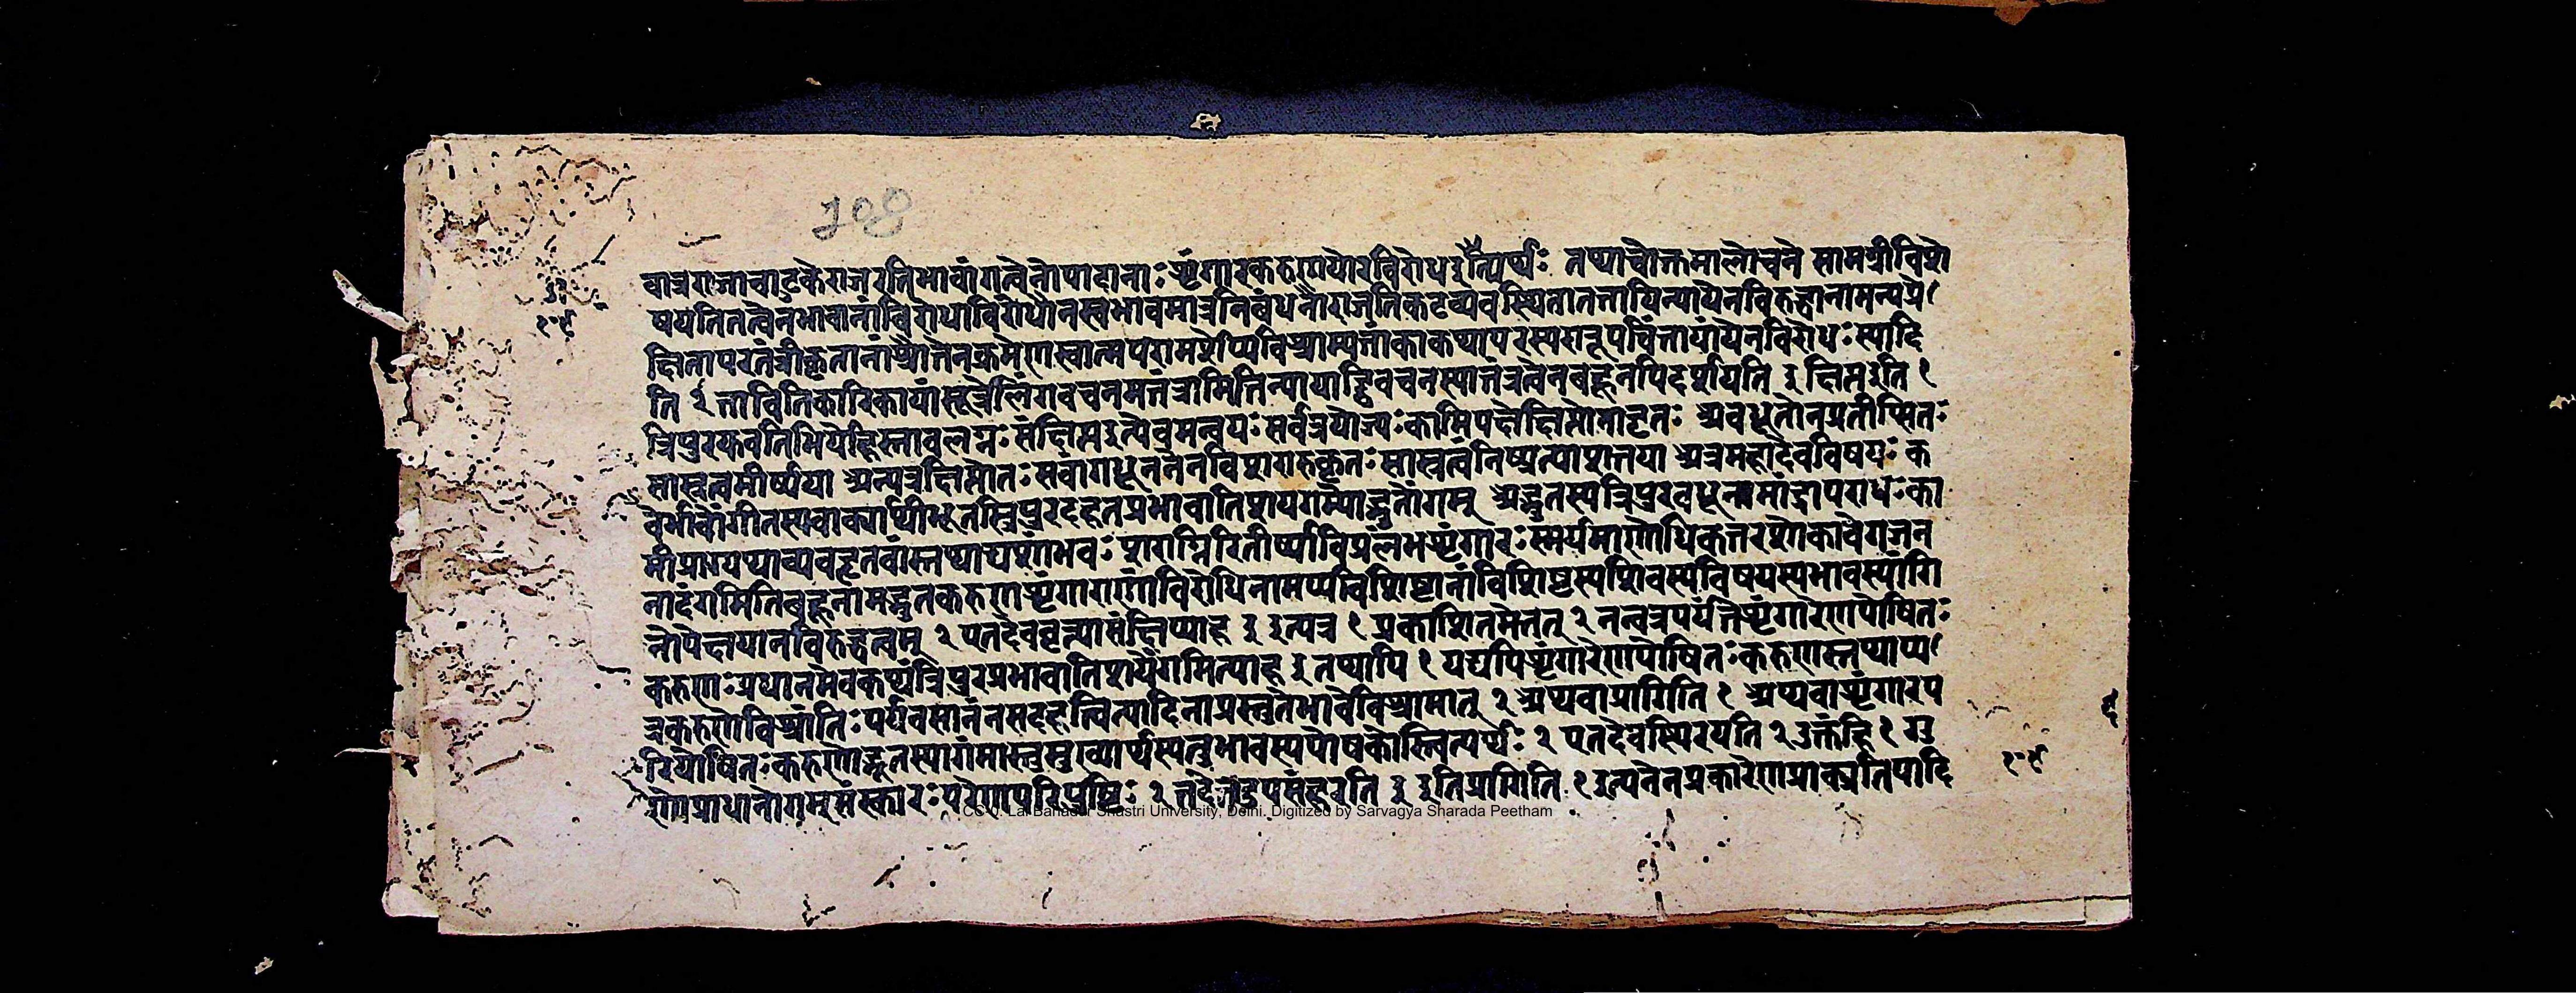 108
वात्रराजाचाटुकेराजरतिभावांगत्वेनोपादाना॰शृंगारकरुणयोरविरोधइत्यर्थः तथाचोक्तमालोचने सामग्रीविशे
षयतितत्वेनभावानांविरोधाविरोधौनस्वभावमात्रनिबंधनौराजतिकटव्यवस्थितातत्तायिन्यायेनविरुद्धानामन्यप्रे
क्षिनापरतंत्रीकृतानांश्रौतेनक्रमेणस्वात्मपरामर्शेप्यविश्राम्यतांकाकथापरस्पररूपचिंतायांयेनविरोधःस्यादि
ति २ ताविति १ कारिकायांसूत्रेलिंगवचनमतंत्रामितिन्यायाद्विवचनस्यातंत्रत्वेनबहूनपिदर्शयति इ क्षिप्तइति १
त्रिपुरयुवतिभियोहस्तावलग्नःसंक्षिप्तइत्येवमन्वयःसर्वत्रयोज्यःकामिपक्षेक्षिप्तोनादृतः अवधूतोनप्रतीप्सितः
सास्रत्वमीर्ष्यया अन्यत्रक्षिप्तोतःसर्वांगधूननेनविशरारुकृतःसास्रत्वंनिष्प्रत्याशतया अत्रमहादेवविषयः क
वेर्भावोंगीतस्यवाक्यार्थीभूतस्त्रिपुरदहनप्रभावातिशयगम्योद्भुतोंगम् अद्भुतस्यत्रिपुरवधूनामार्द्रापराधःका
मीप्राग्यथाव्यवहृतवांस्तथाद्यशांभवःशराग्निरितीर्ष्याविप्रलंभशृंगारःस्मर्यमाणोधिकतरशोकावेगजन
नादंगमितिबहूनामद्भुतकरुणशृंगाराणांविरोधिनामप्यविशिष्टानांविशिष्टस्यशिवस्यविषयस्यभावस्यांगि
नोपेक्षयानविरुद्धत्वम् २ एतदेववृत्त्यासंक्षिप्याह इ इत्यत्र १ प्रकाशितमेतत् २ नन्वत्रपर्यंतेशृंगारेणपोषितः
करुणःप्रधानमेवकथंत्रिपुरप्रभावातिशयेंगमित्याह इ तथापि १ यद्यपिशृंगारेणपोषितःकरुणस्तथाप्य
त्रकरुणेविश्रांतिःपर्यवसानंनसदहत्वित्यादिनाप्रस्तुतेभावेविश्रामात् २ अथवाप्रागिति १ अथवाशृंगारप
रिपोषितःकरुणोद्भूतस्यागंमास्तुमुख्यार्थस्यतुभावस्यपोषकोस्त्वित्यर्थः २ एतदेवस्थिरयति २ उक्तंहि १ गु
णःप्रधानेगुमसंस्कारःपरेणपरिपुष्टिः २ तदेतदुपसंहरति इ इतिप्रागिति १ इत्यनेनप्रकारेणप्राक्प्रतिपादि
CC-0. Lal Bahadur Shastri University, Delhi. Digitized by Sarvagya Sharada Peetham